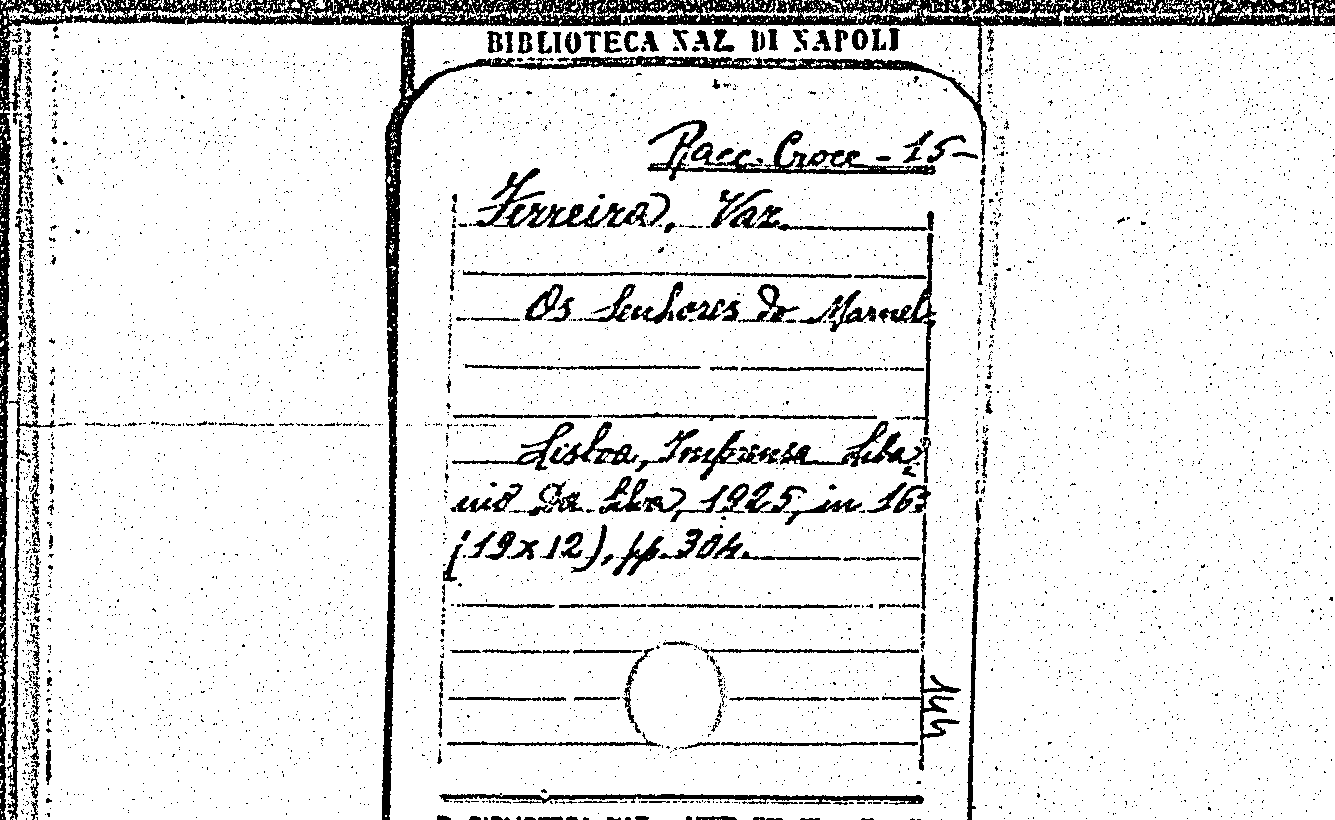 BIBLIOTECA NAZ. DI NAPOLI
Racc. Croce - 15 -
Ferreira, Vaz.
Os Senhores do Marnel.
Lisboa, Imprensa Liba-
nio da Silva, 1925, in 16º
(19x12), pp. 304.
144